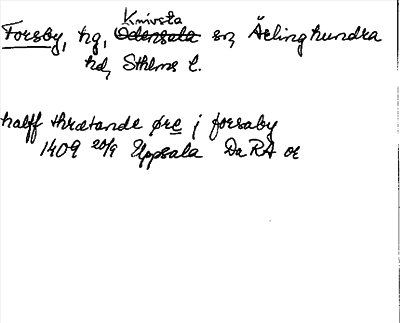 Knivsta
Forsby, hg, Odensala sn, Ärlinghundra
hd, Sthlms l.
halff thrætande øre j forsaby
1409 20/9 Uppsala DaRA or